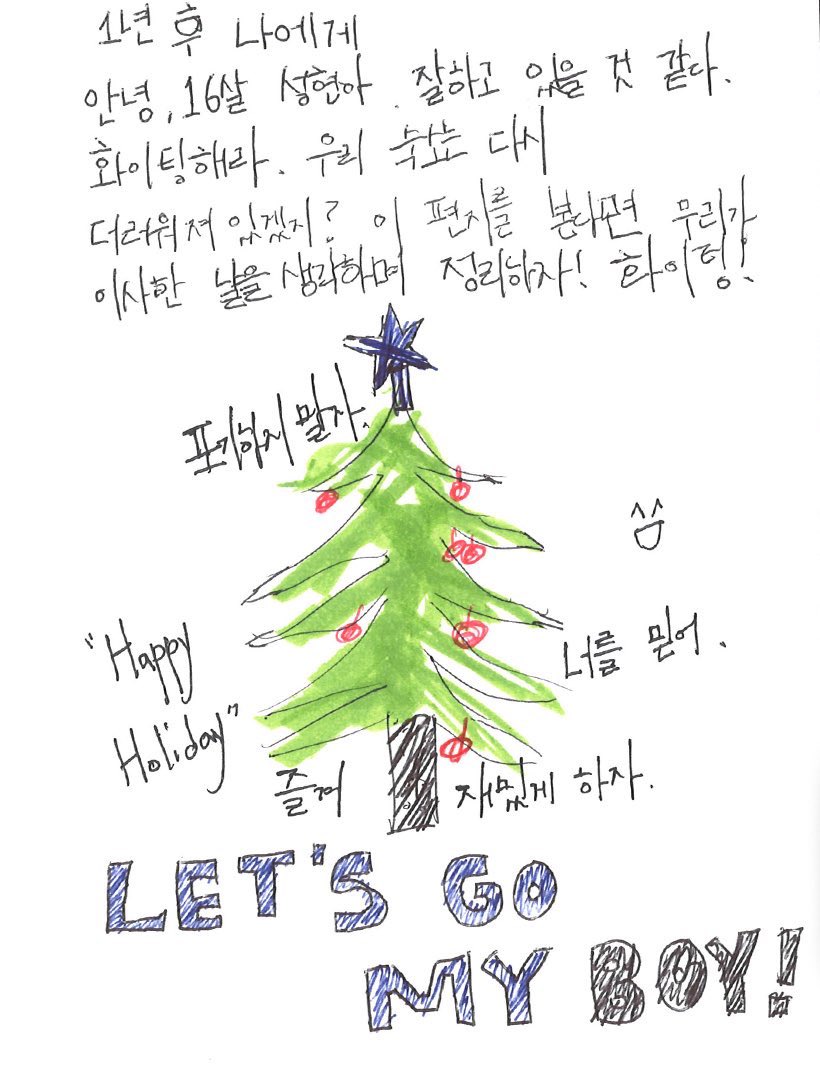 1년 후 나에게
안녕, 16살 설현아. 잘하고 있을 것 같다.
화이팅해라. 우리 숙소는 다시
더러워져 있겠지? 이 편지를 본다면 우리가
이사한 날을 생각하며 정리하자! 화이팅!
포기하지 말자.
"Happy
Holiday"
너를 믿어.
즐겨
재밌게 하자.
LET'S GO
MY BOY!